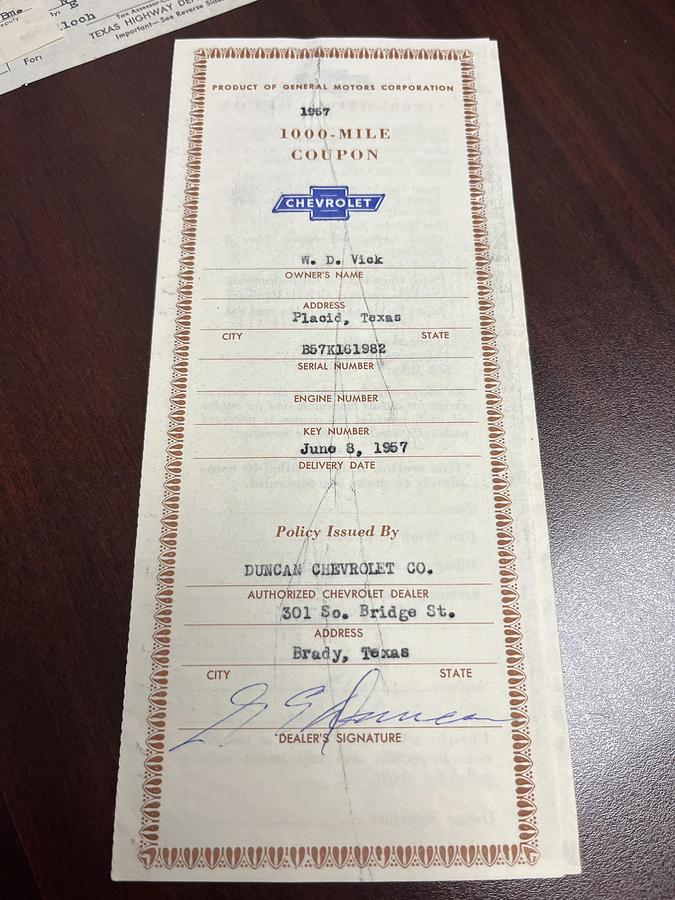 Tax Assessor-C
looh
TEXAS HIGHWAY DE
Important—See Reverse Side
For:
PRODUCT OF GENERAL MOTORS CORPORATION
1957
1000-MILE
COUPON
CHEVROLET
W. D. Vick
OWNER'S NAME
ADDRESS
Placid, Texas
CITY STATE
B57K161982
SERIAL NUMBER
ENGINE NUMBER
KEY NUMBER
June 8, 1957
DELIVERY DATE
Policy Issued By
DUNCAN CHEVROLET CO.
AUTHORIZED CHEVROLET DEALER
301 So. Bridge St.
ADDRESS
Brady, Texas
CITY STATE
G E Duncan
DEALER'S SIGNATURE